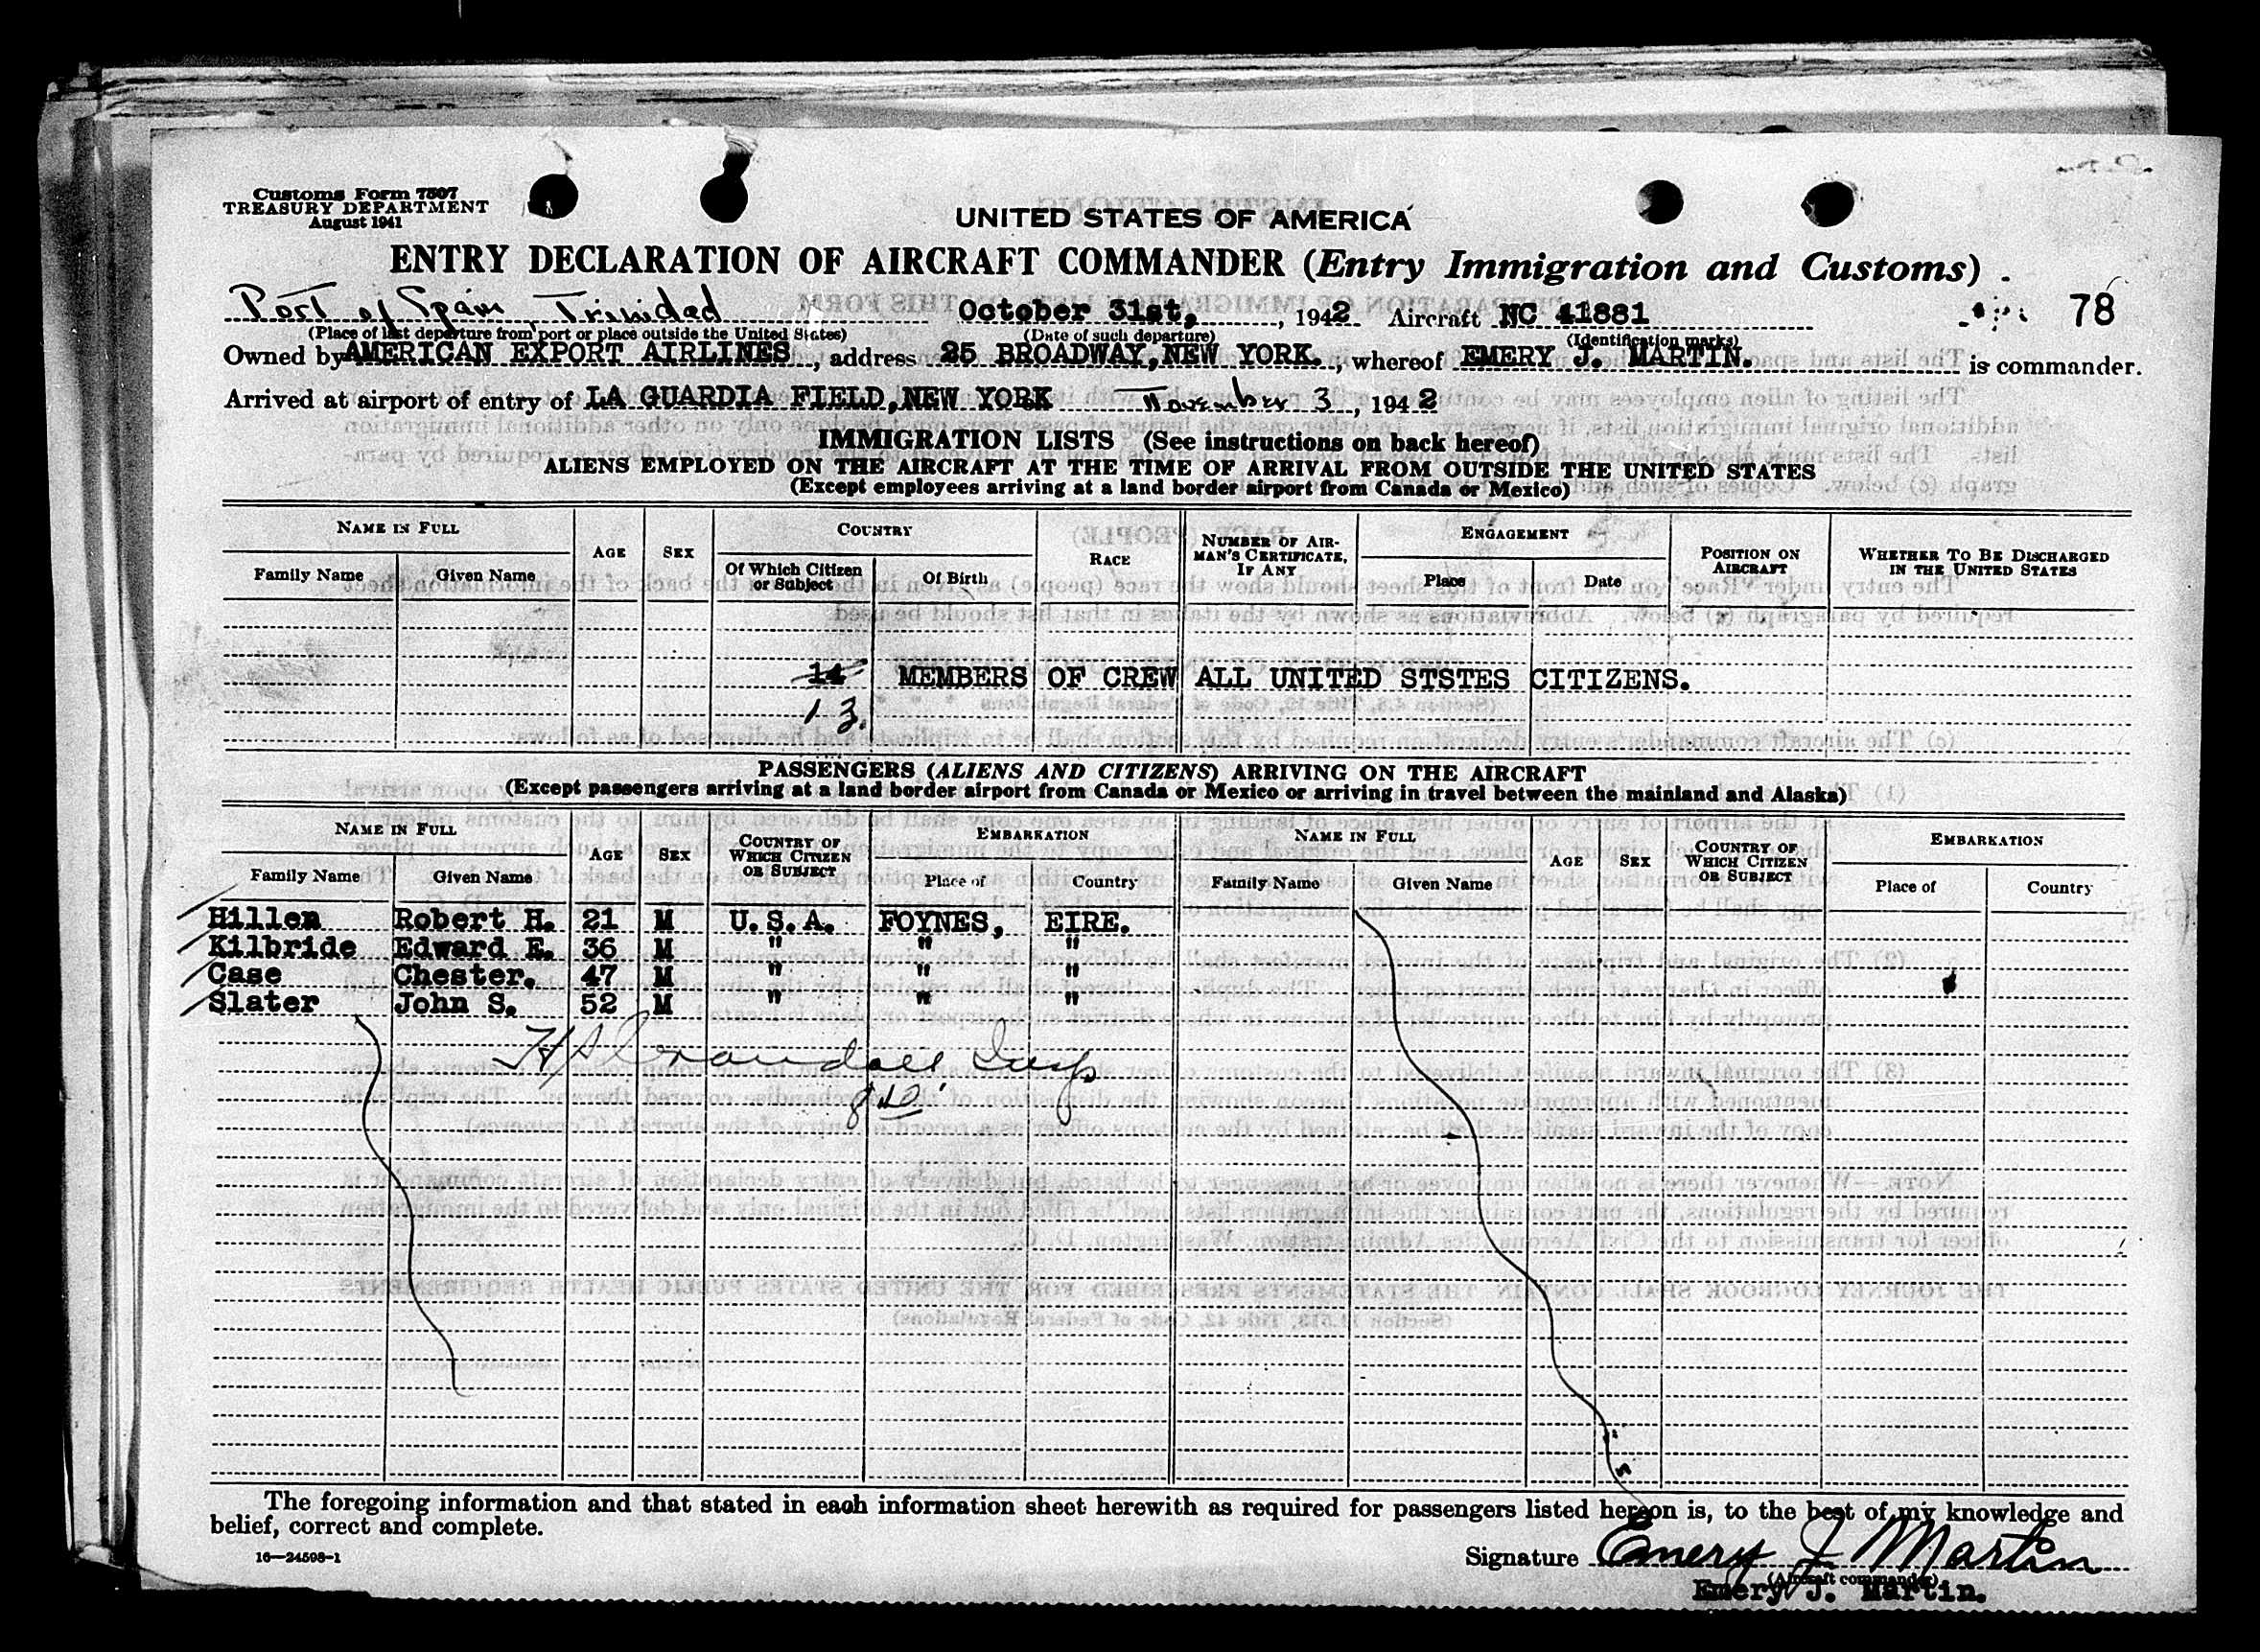 Customs Form 7507
TREASURY DEPARTMENT
August 1941
UNITED STATES OF AMERICA
ENTRY DECLARATION OF AIRCRAFT COMMANDER (Entry Immigration and Customs)
Port of Spain, Trinidad October 31st, , 1942 Aircraft NC 41881 78
(Place of last departure from port or place outside the United States) (Date of such departure) (Identification marks)
Owned by AMERICAN EXPORT AIRLINES , address 25 BROADWAY, NEW YORK. , whereof EMERY J. MARTIN. is commander.
Arrived at airport of entry of LA GUARDIA FIELD, NEW YORK November 3 , 1942
IMMIGRATION LISTS (See instructions on back hereof)
ALIENS EMPLOYED ON THE AIRCRAFT AT THE TIME OF ARRIVAL FROM OUTSIDE THE UNITED STATES
(Except employees arriving at a land border airport from Canada or Mexico)
NAME IN FULL AGE SEX COUNTRY RACE NUMBER OF AIRMAN'S CERTIFICATE, IF ANY ENGAGEMENT POSITION ON AIRCRAFT WHETHER TO BE DISCHARGED IN THE UNITED STATES
Family Name Given Name Of Which Citizen or Subject Of Birth Place Date
14 MEMBERS OF CREW ALL UNITED STSTES CITIZENS.
13.
PASSENGERS (ALIENS AND CITIZENS) ARRIVING ON THE AIRCRAFT
(Except passengers arriving at a land border airport from Canada or Mexico or arriving in travel between the mainland and Alaska)
NAME IN FULL AGE SEX COUNTRY OF WHICH CITIZEN OR SUBJECT EMBARKATION NAME IN FULL AGE SEX COUNTRY OF WHICH CITIZEN OR SUBJECT EMBARKATION
Family Name Given Name Place of Country Family Name Given Name Place of Country
Hillen Robert H. 21 M U.S.A. FOYNES, EIRE.
Kilbride Edward E. 36 M " " "
Case Chester. 47 M " " "
Slater John S. 52 M " " "
Crandall Insp
The foregoing information and that stated in each information sheet herewith as required for passengers listed hereon is, to the best of my knowledge and
belief, correct and complete.
16—24598-1
Signature Emery J Martin
(Aircraft commander)
Emery J. Martin.